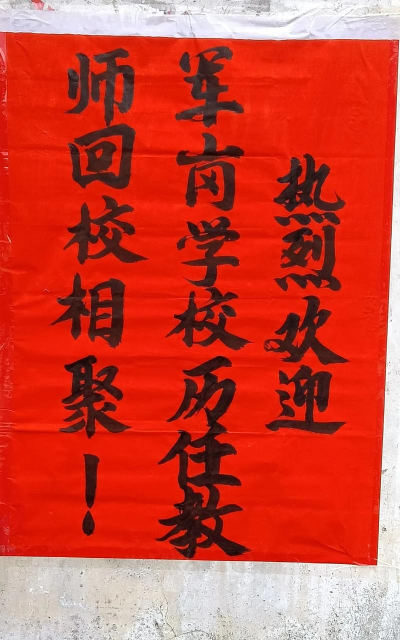 热烈欢迎
军岗学校历任教
师回校相聚！